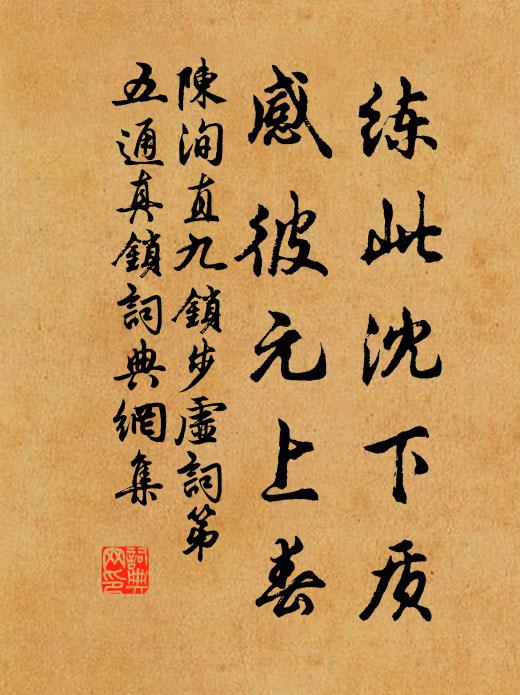 练此沈下质
感彼元上春
陳洵直九鎖步虛詞第
五通真鎖詞典網集
詞典网印